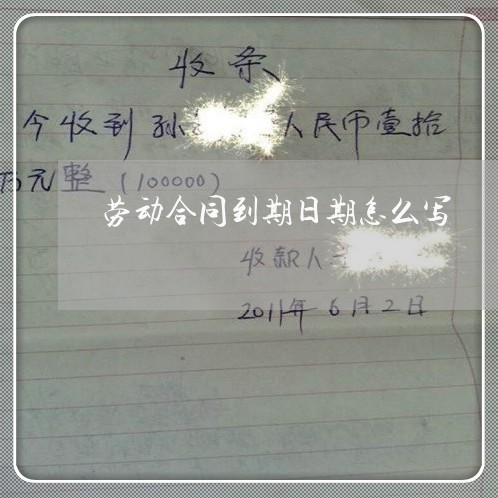 收条
今收到孙 人民币壹拾
万元整（100000）
劳动合同到期日期怎么写
收款人
2011年6月2日